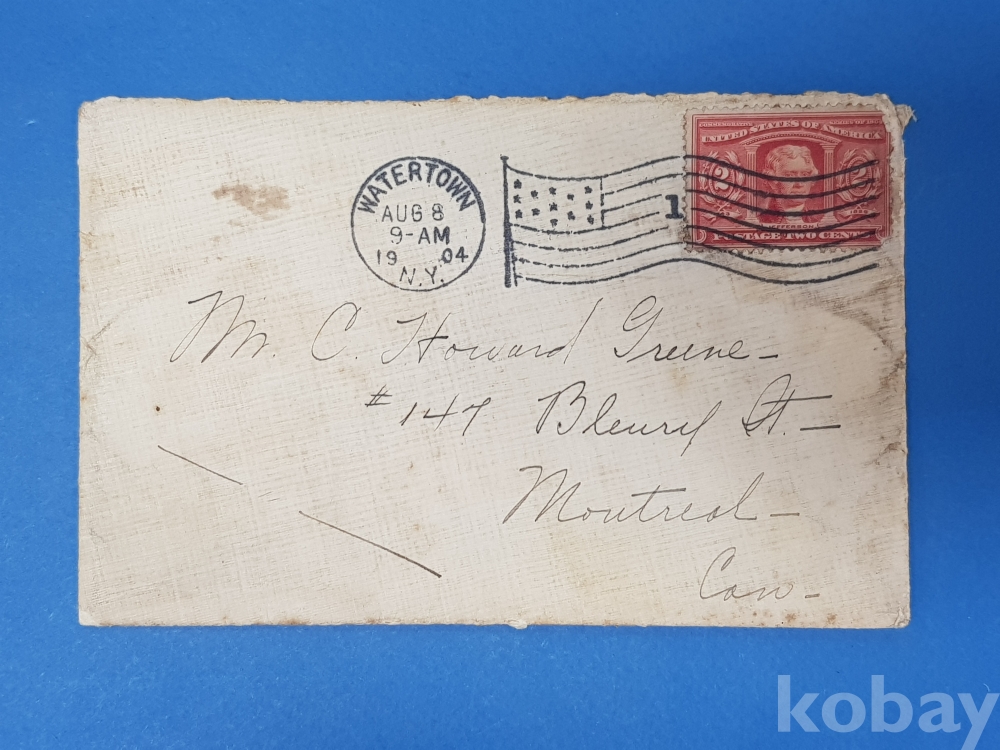 WATERTOWN
AUG 8
9-AM
19 04
N.Y.
1
UNITED STATES OF AMERICA
2 2
JEFFERSON
POSTAGE TWO CENTS
Mr. C. Howard Greene-
# 147 Bleury St.-
Montreal-
Can-
kobay